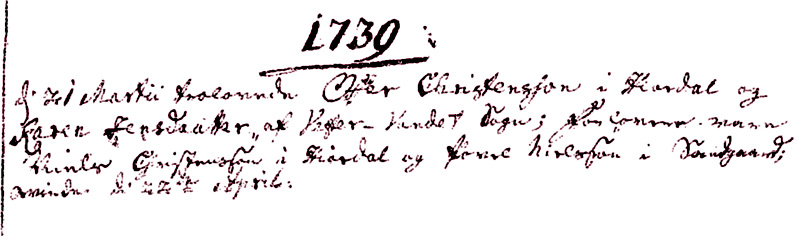 1739
d: 21 Martii trolovede Offer Christensøn i Hiardal og
Karen Jensdaatter, af Vester-Vandet Sogn; Forlovere vare
Niels Christensøn i Hiardal og Povel Nielsøn i Sandgaard;
d: 22 April.